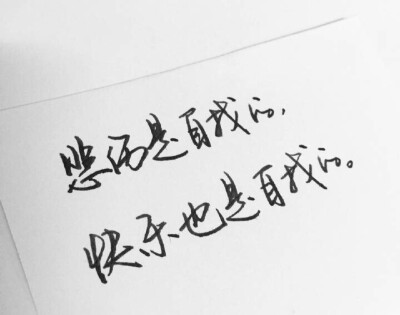 悲伤是自找的，
快乐也是自找的。